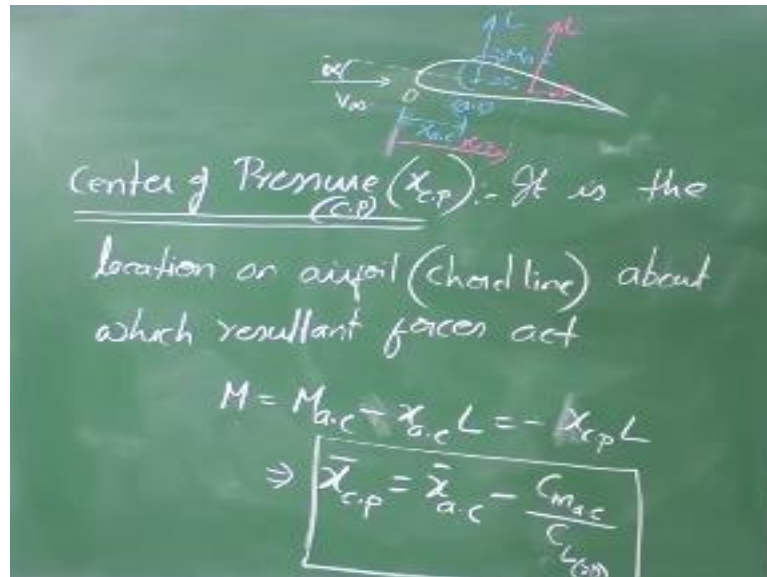 L L
α
V∞ O a.c
x_a.c
Center of Pressure (x_c.p) :- It is the
(C.P)
location on airfoil (chord line) about
which resultant forces act
M = M_a.c - x_a.c L = - x_c.p L
⇒ x̄_c.p = x̄_a.c - C_m_a.c / C_L